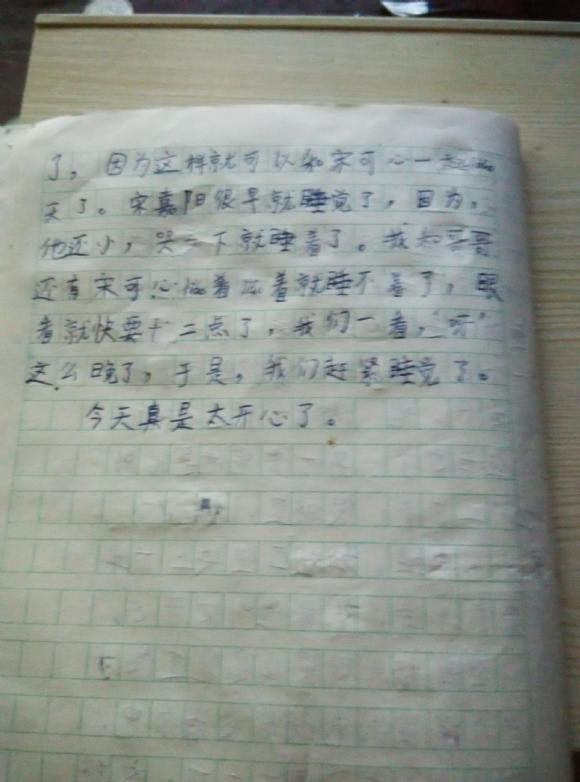 了，因为这样就可以和宋可心一起
天了。宋嘉阳很早就睡觉了，因为，
他还小，哭一下就睡着了。我和哥哥
还有宋可心 着 着就睡不着了，眼
看就快要十二点了，我们一看，“呀”
这么晚了，于是，我们赶紧睡觉了。
今天真是太开心了。